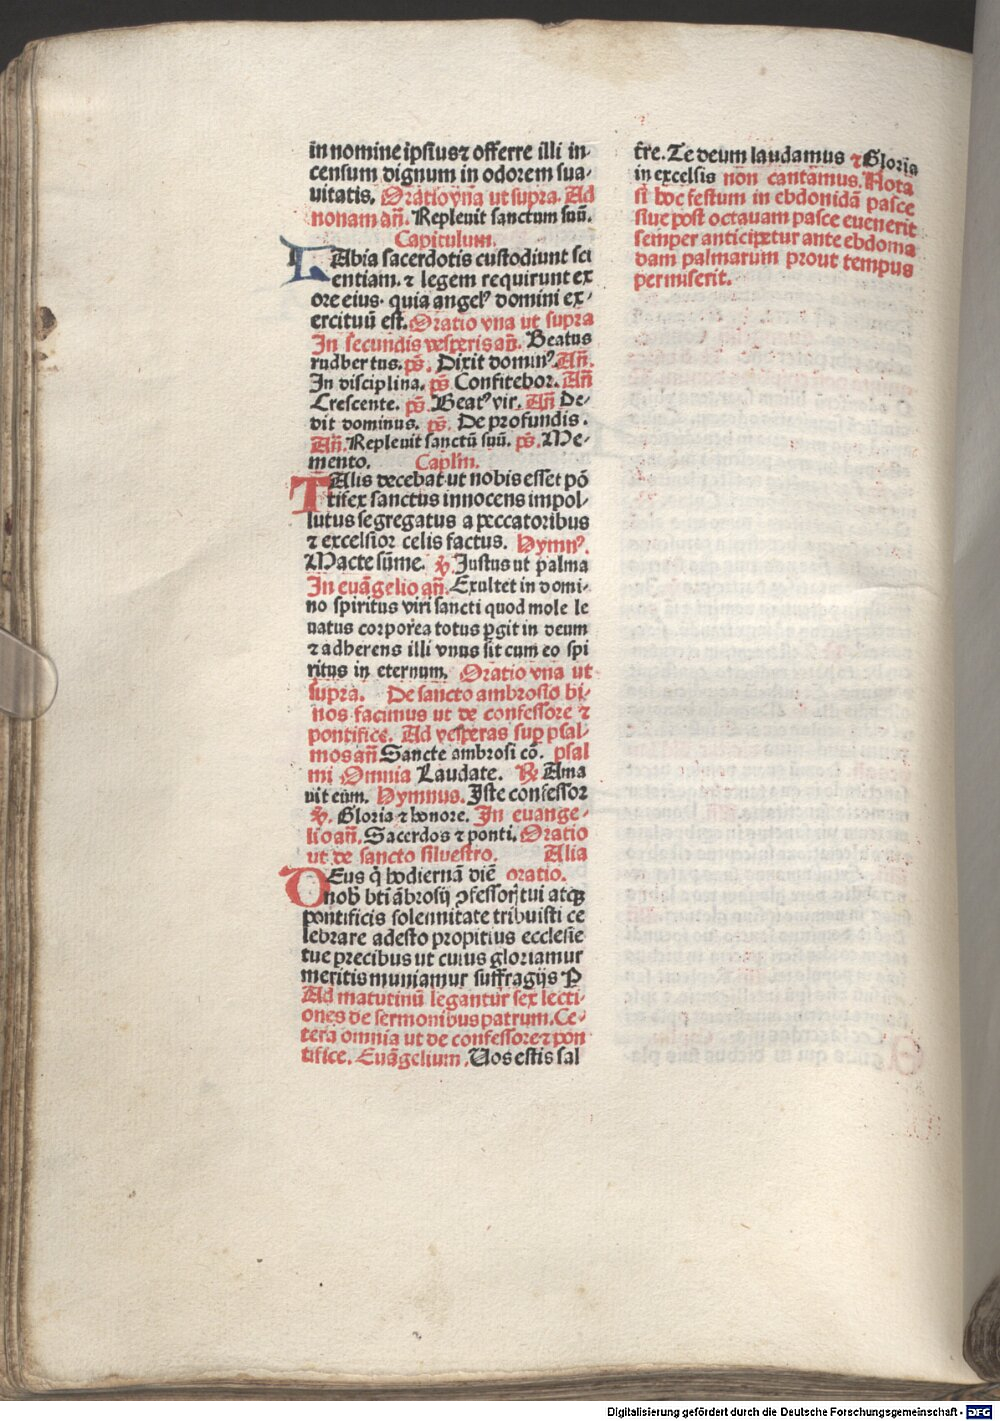 in nomine ipsiusꝫ offerre illi in-
censum dignum in odorem sua-
uitatis. Oratio vña ut supra. Ad
nonam añ. Repleuit sanctum suū.
Capitulum.
LAbia sacerdotis custodiunt sci
entiam. ⁊ legem requirunt ex
ore eius. quia angelꝰ domini ex-
ercituū est. Oratio vna ut supra
In secundis vesperis añ. Beatus
rudbertus. pš. Dixit dominꝰ. Añ.
In disciplina. pš Confitebor. Añ
Crescente. pš. Beatꝰ vir. Añ De-
dit dominus. pš. De profundis.
Añ. Repleuit sanctū suū. pš. Me-
mento. Caplm.
TAlis decebat ut nobis esset pō
tifex sanctus innocens impol-
lutus segregatus a peccatoribus
⁊ excelsior celis factus. Hymnꝰ.
Macte sūme. ℣. Justus ut palma
In euāgelio añ. Exultet in domi-
no spiritus viri sancti quod mole le
uatus corporea totus ꝑgit in deum
⁊ adherens illi vnus sit cum eo spi
ritus in eternum. Oratio vna ut
supra. De sancto ambrosio bi-
nos facimus ut de confessore ⁊
pontifice. Ad vesperas suꝑ psal-
mos añ Sancte ambrosi cō. psal
mi Omnia Laudate. ℟ Ama
uit eum. Hymnus. Iste confessor
℣. Gloria ⁊ honore. In euange-
lio añ. Sacerdos ⁊ ponti. Oratio
ut de sancto siluestro. Alia
DEus q̇ hodiernā diē oratio.
nob̄ bti āmbrosij ꝯfessorȷ tui atqꝫ
pontificis solennitate tribuisti ce
lebrare adesto propitius ecclesie
tue precibus ut cuius gloriamur
meritis muniamur suffragijs P
Ad matutinū legantur sex lecti-
ones de sermonibus patrum. Ce-
tera omnia ut de confessore ⁊ pon
tifice. Euāgelium. Uos estis sal
tr̄e. Te deum laudamus ⁊ Gloria
in excelsis non cantamus. Nota
si hoc festum in ebdomda pasce
siue post octauam pasce euenerit
semper anticipetur ante ebdoma
dam palmarum prout tempus
permiserit.
Digitalisierung gefördert durch die Deutsche Forschungsgemeinschaft - DFG